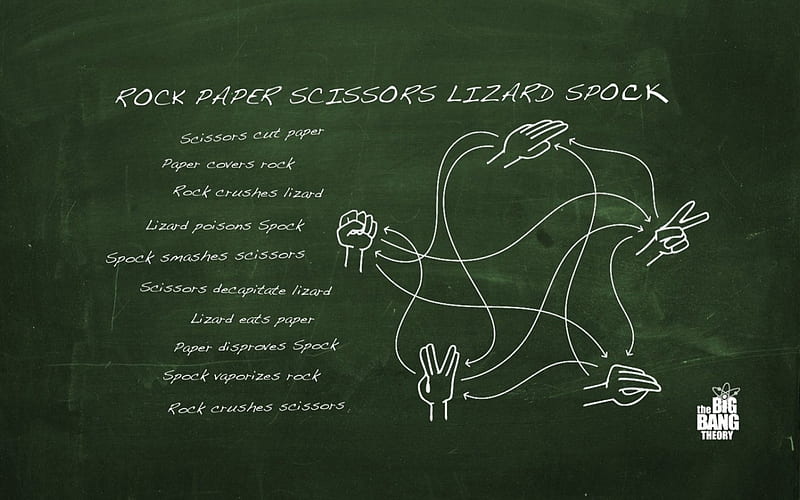 ROCK PAPER SCISSORS LIZARD SPOCK
Scissors cut paper
Paper covers rock
Rock crushes lizard
Lizard poisons Spock
Spock smashes scissors
Scissors decapitate lizard
Lizard eats paper
Paper disproves Spock
Spock vaporizes rock
Rock crushes scissors.
the BIG
BANG
THEORY